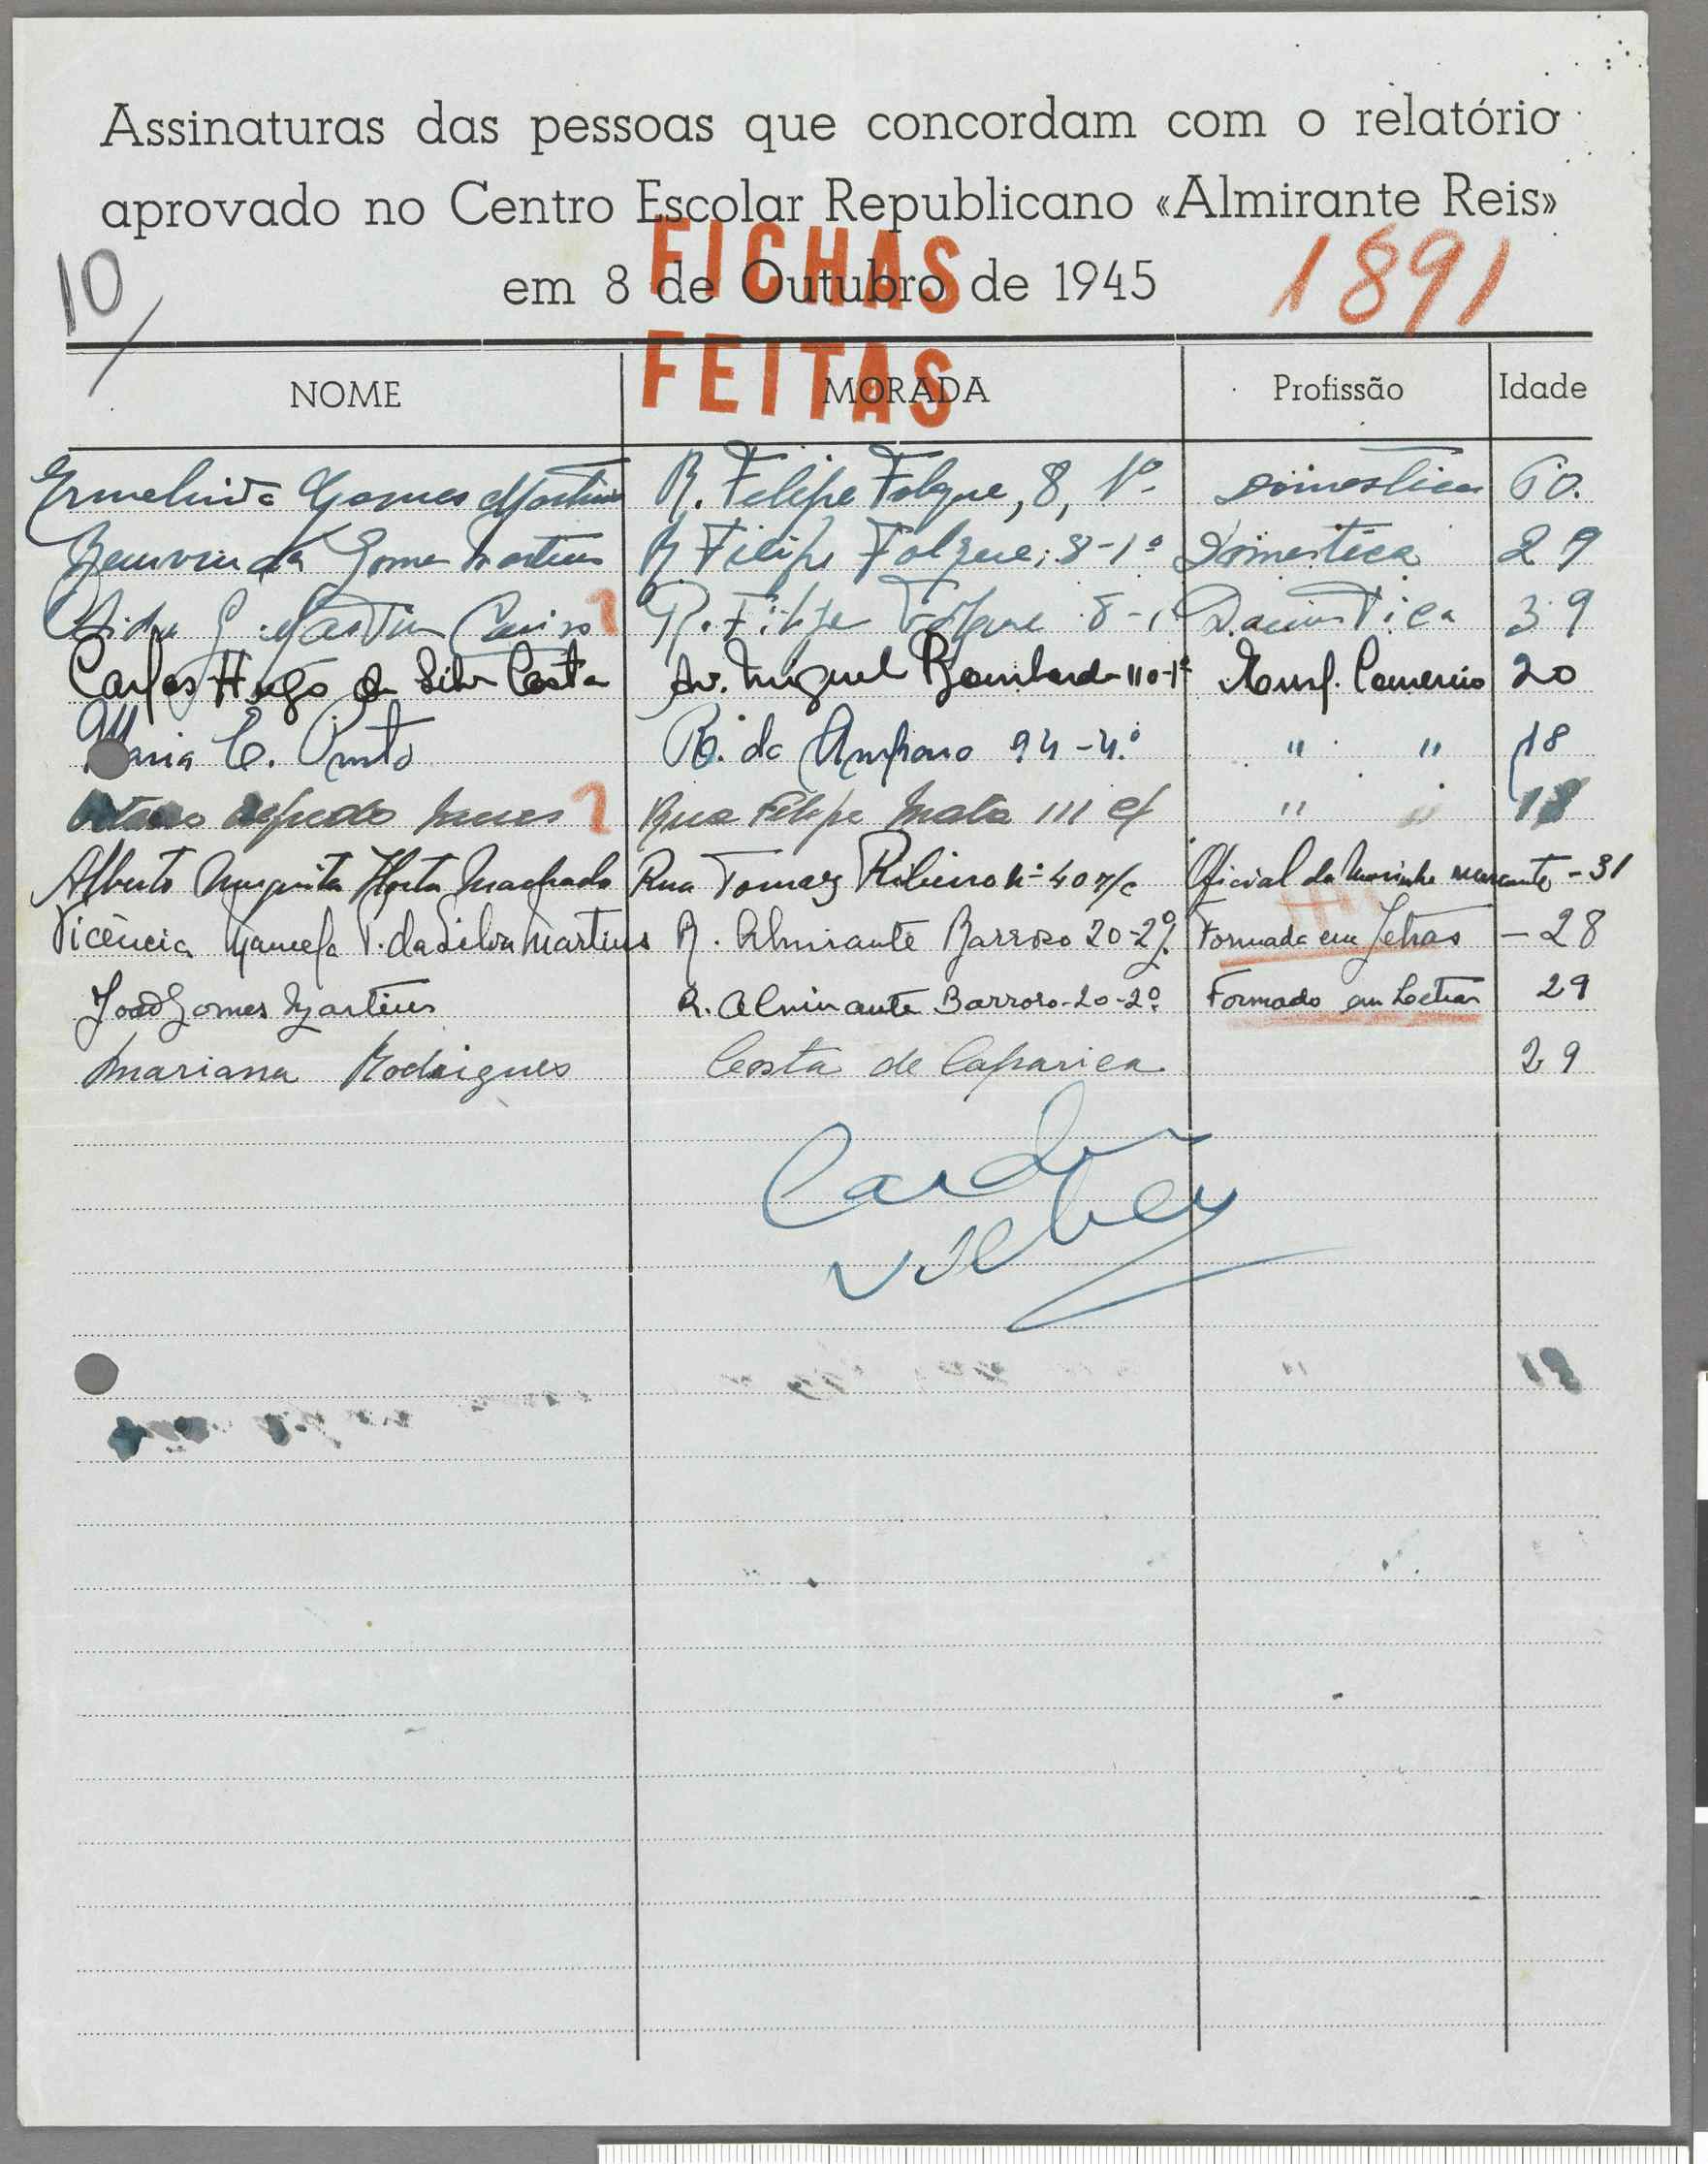 Assinaturas das pessoas que concordam com o relatório
aprovado no Centro Escolar Republicano «Almirante Reis»
em 8 de Outubro de 1945
FICHAS
FEITAS
10/
1891
NOME MORADA Profissão Idade
Ermelinda Gomes Martins R. Felipe Folque, 8, 1º Domestica 60.
Benvinda Gomes Martins R Filipe Folque, 8-1º Domestica 29
G. Martins R. Filipe Folque 8-1 Domestica 39
Carlos Hugo da Silva Costa Av. Miguel Bombarda 110-1º Emp. Comercio 20
Maria C. Pinto R. do Amparo 94-4.º " " 18
Alfredo Nunes Rua Filipe Mata 111 " " 18
Alberto Horta Machado Rua Tomaz Ribeiro nº 40 r/c Oficial da Marinha mercante - 31
Vicência Manuela T. da Silva Martins R. Almirante Barroso 20-2º Formada em Letras - 28
João Gomes Martins R. Almirante Barroso-20-2º Formado em Letras 29
Mariana Rodrigues Costa de Caparica 29